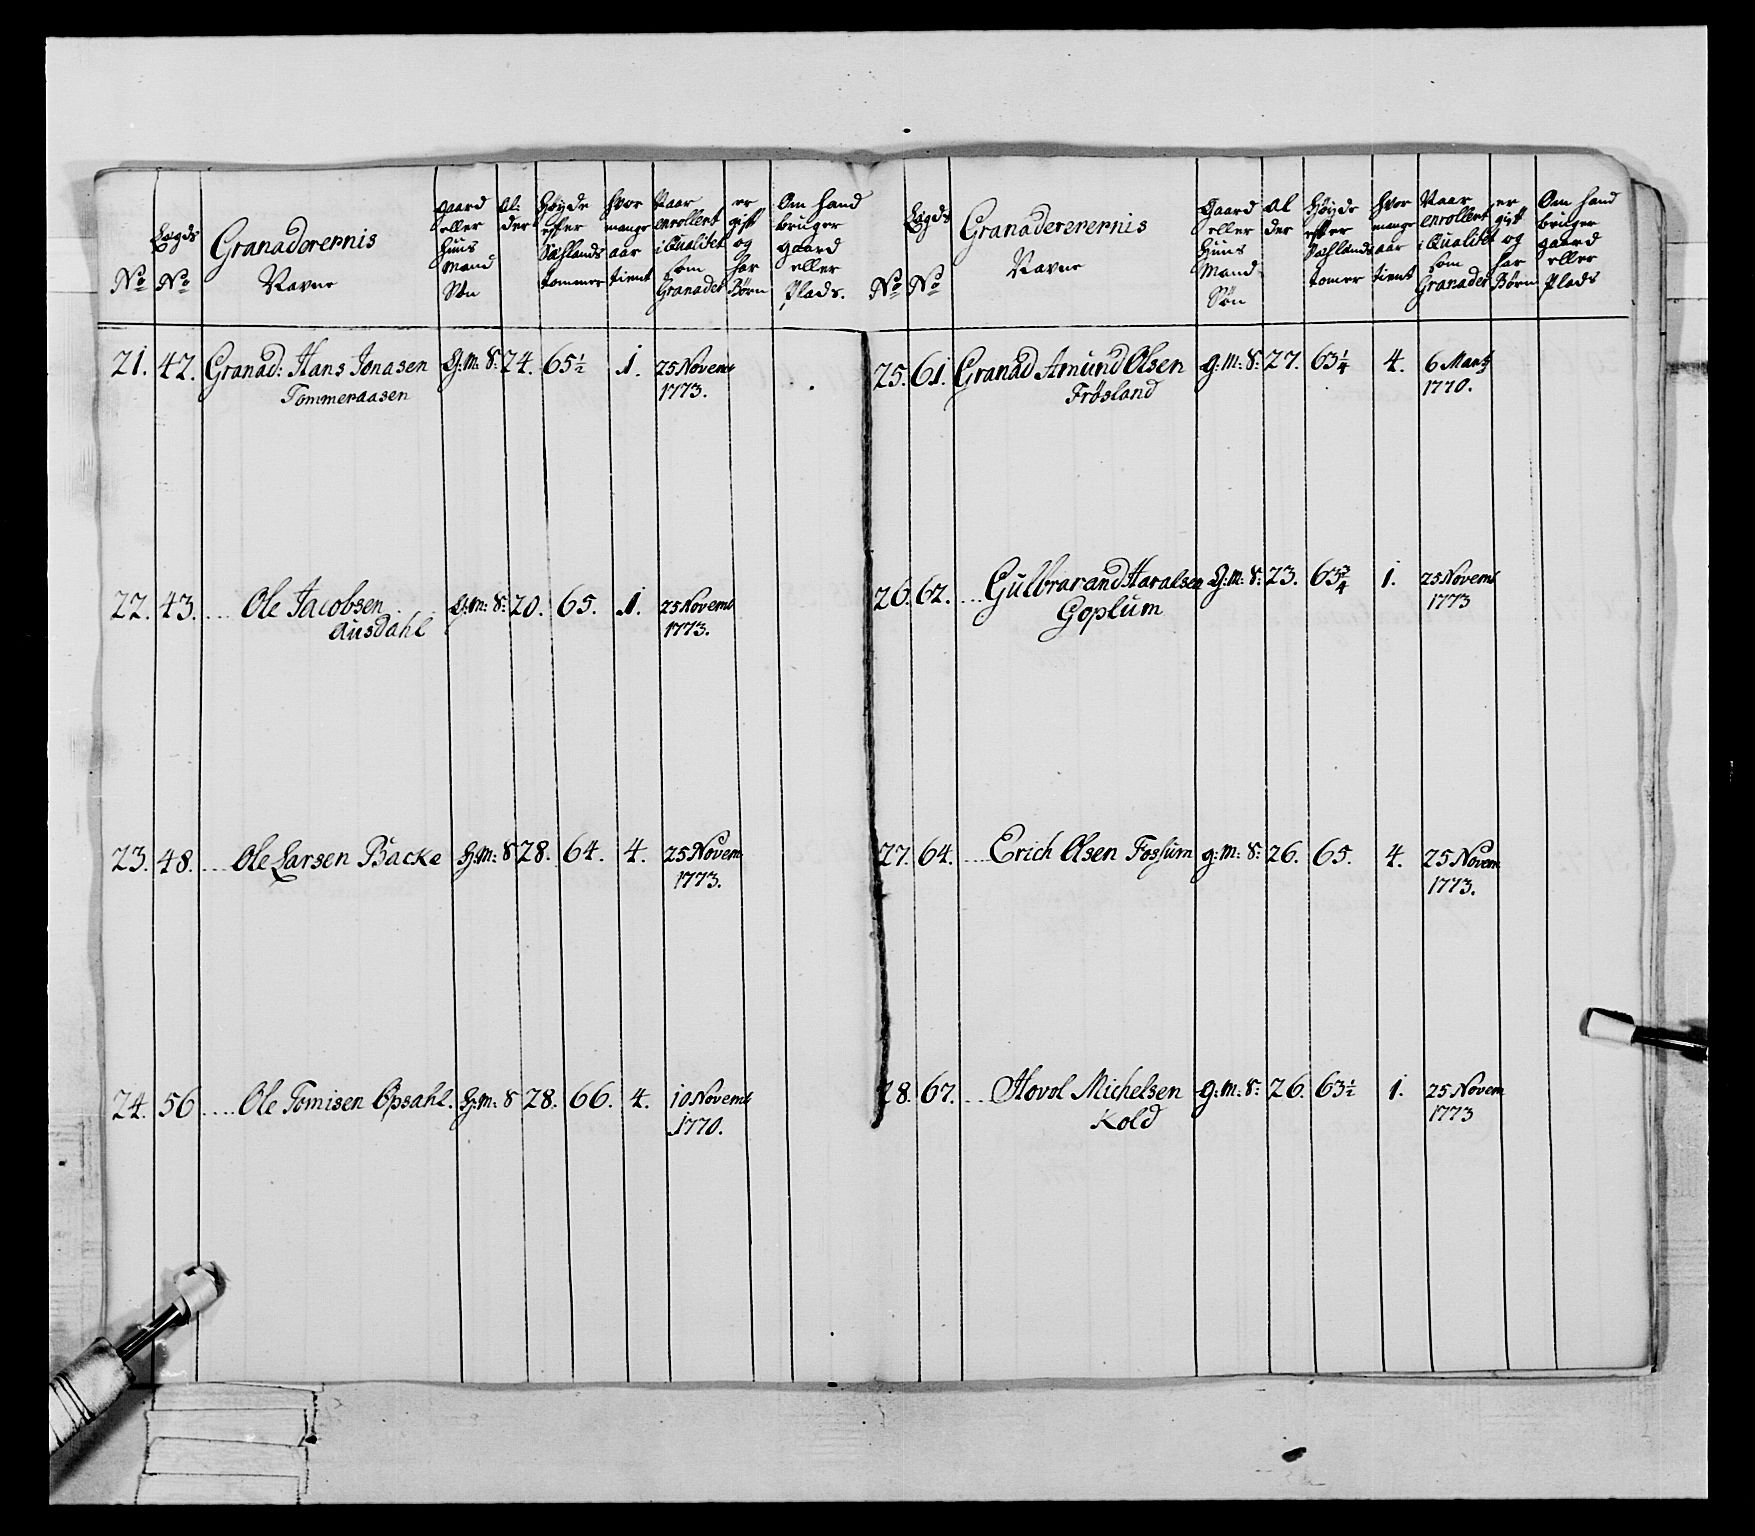 No
Lægds No
Granaderernis Navne
Gaard eller Huus Mand Søn
Al der
Høyde efter Siællands tommer
Hvor mange aar tient
Naar enrollert i Qualitet som Granader
er gift og har Børn
Om hand bruger gaard eller Plads.
21. 42. Granad: Hans Jonasen G:m: S: 24. 65½ 1. 25 Novemb
Tommeraasen 1773.
22. 43. .... Ole Jacobsen G:m: S: 20. 65. 1. 25 Novemb
Ausdahl 1773.
23. 48. .... Ole Larsen Backe H:m: S 28. 64. 4. 25 Novem
1773.
24. 56 .... Ole Tomisen Opsahl. H:m: S 28. 66. 4. 10 Novemb
1770.
No
Lægds No
Granadererernis Navne
Gaard eller Huus Mand Søn
Al der
Høyde efter Siællands tomer
Hvor mange aar tient
Naar enrollert i Qualitet som Granader
er gift og har Børn
Om hand bruger gaard eller Plads
25. 61. Granad Amund Olsen g:m: S: 27. 63¼ 4. 6 Martj
Frösland 1770.
26. 62. .... Gulbrarand Haralsen G:m: S: 23. 63¾ 1. 25 Novemb
Goplum 1773
27. 64. .... Erich Olsen Fossum g:m: S: 26. 65. 4. 25 Novem
1773.
28. 67. .... Hovol Michelsen g:m: S: 26. 63½ 1. 25 Novem
Kold 1773